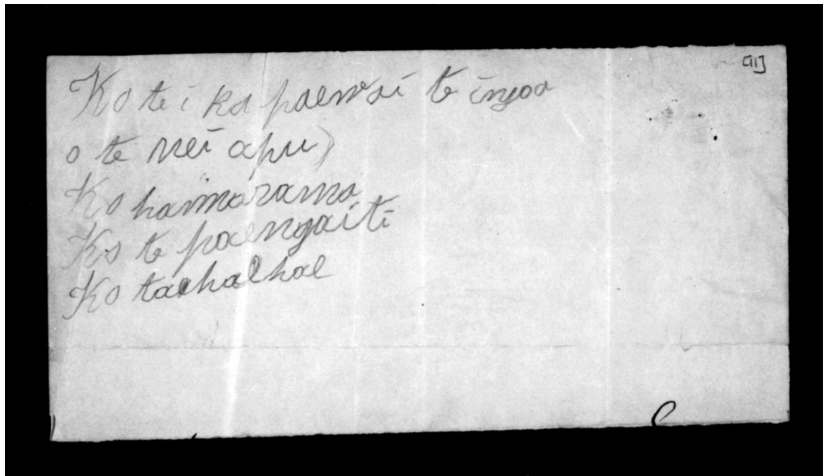 Ko te i ka paewai te ingoa
o te nei apu)
Ko
Ko te paengaiti
Ko taehaehae